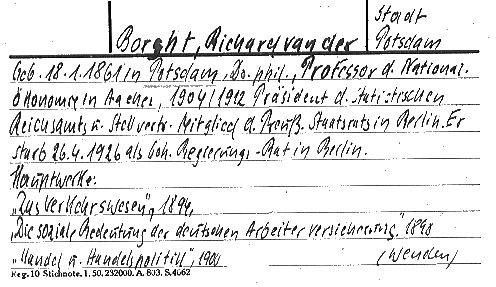 Stadt
Borght, Richard van der Potsdam
Geb. 18.1.1861 in Potsdam, Dr. phil., Professor d. National-
ökonomie in Aachen, 1904/1912 Präsident d. Statistischen
Reichsamts u. Stellvertr. Mitglied d. Preuß. Staatsrats in Berlin. Er
starb 26.4.1926 als Geh. Regierungs-Rat in Berlin.
Hauptwerke:
"Das Verkehrswesen", 1894,
"Die soziale Bedeutung der deutschen Arbeiterversicherung," 1898
"Handel u. Handelspolitik", 1900
(Wenden)
Reg. 10 Stichnote. 1. 50. 232000. A. 803. S. 4662